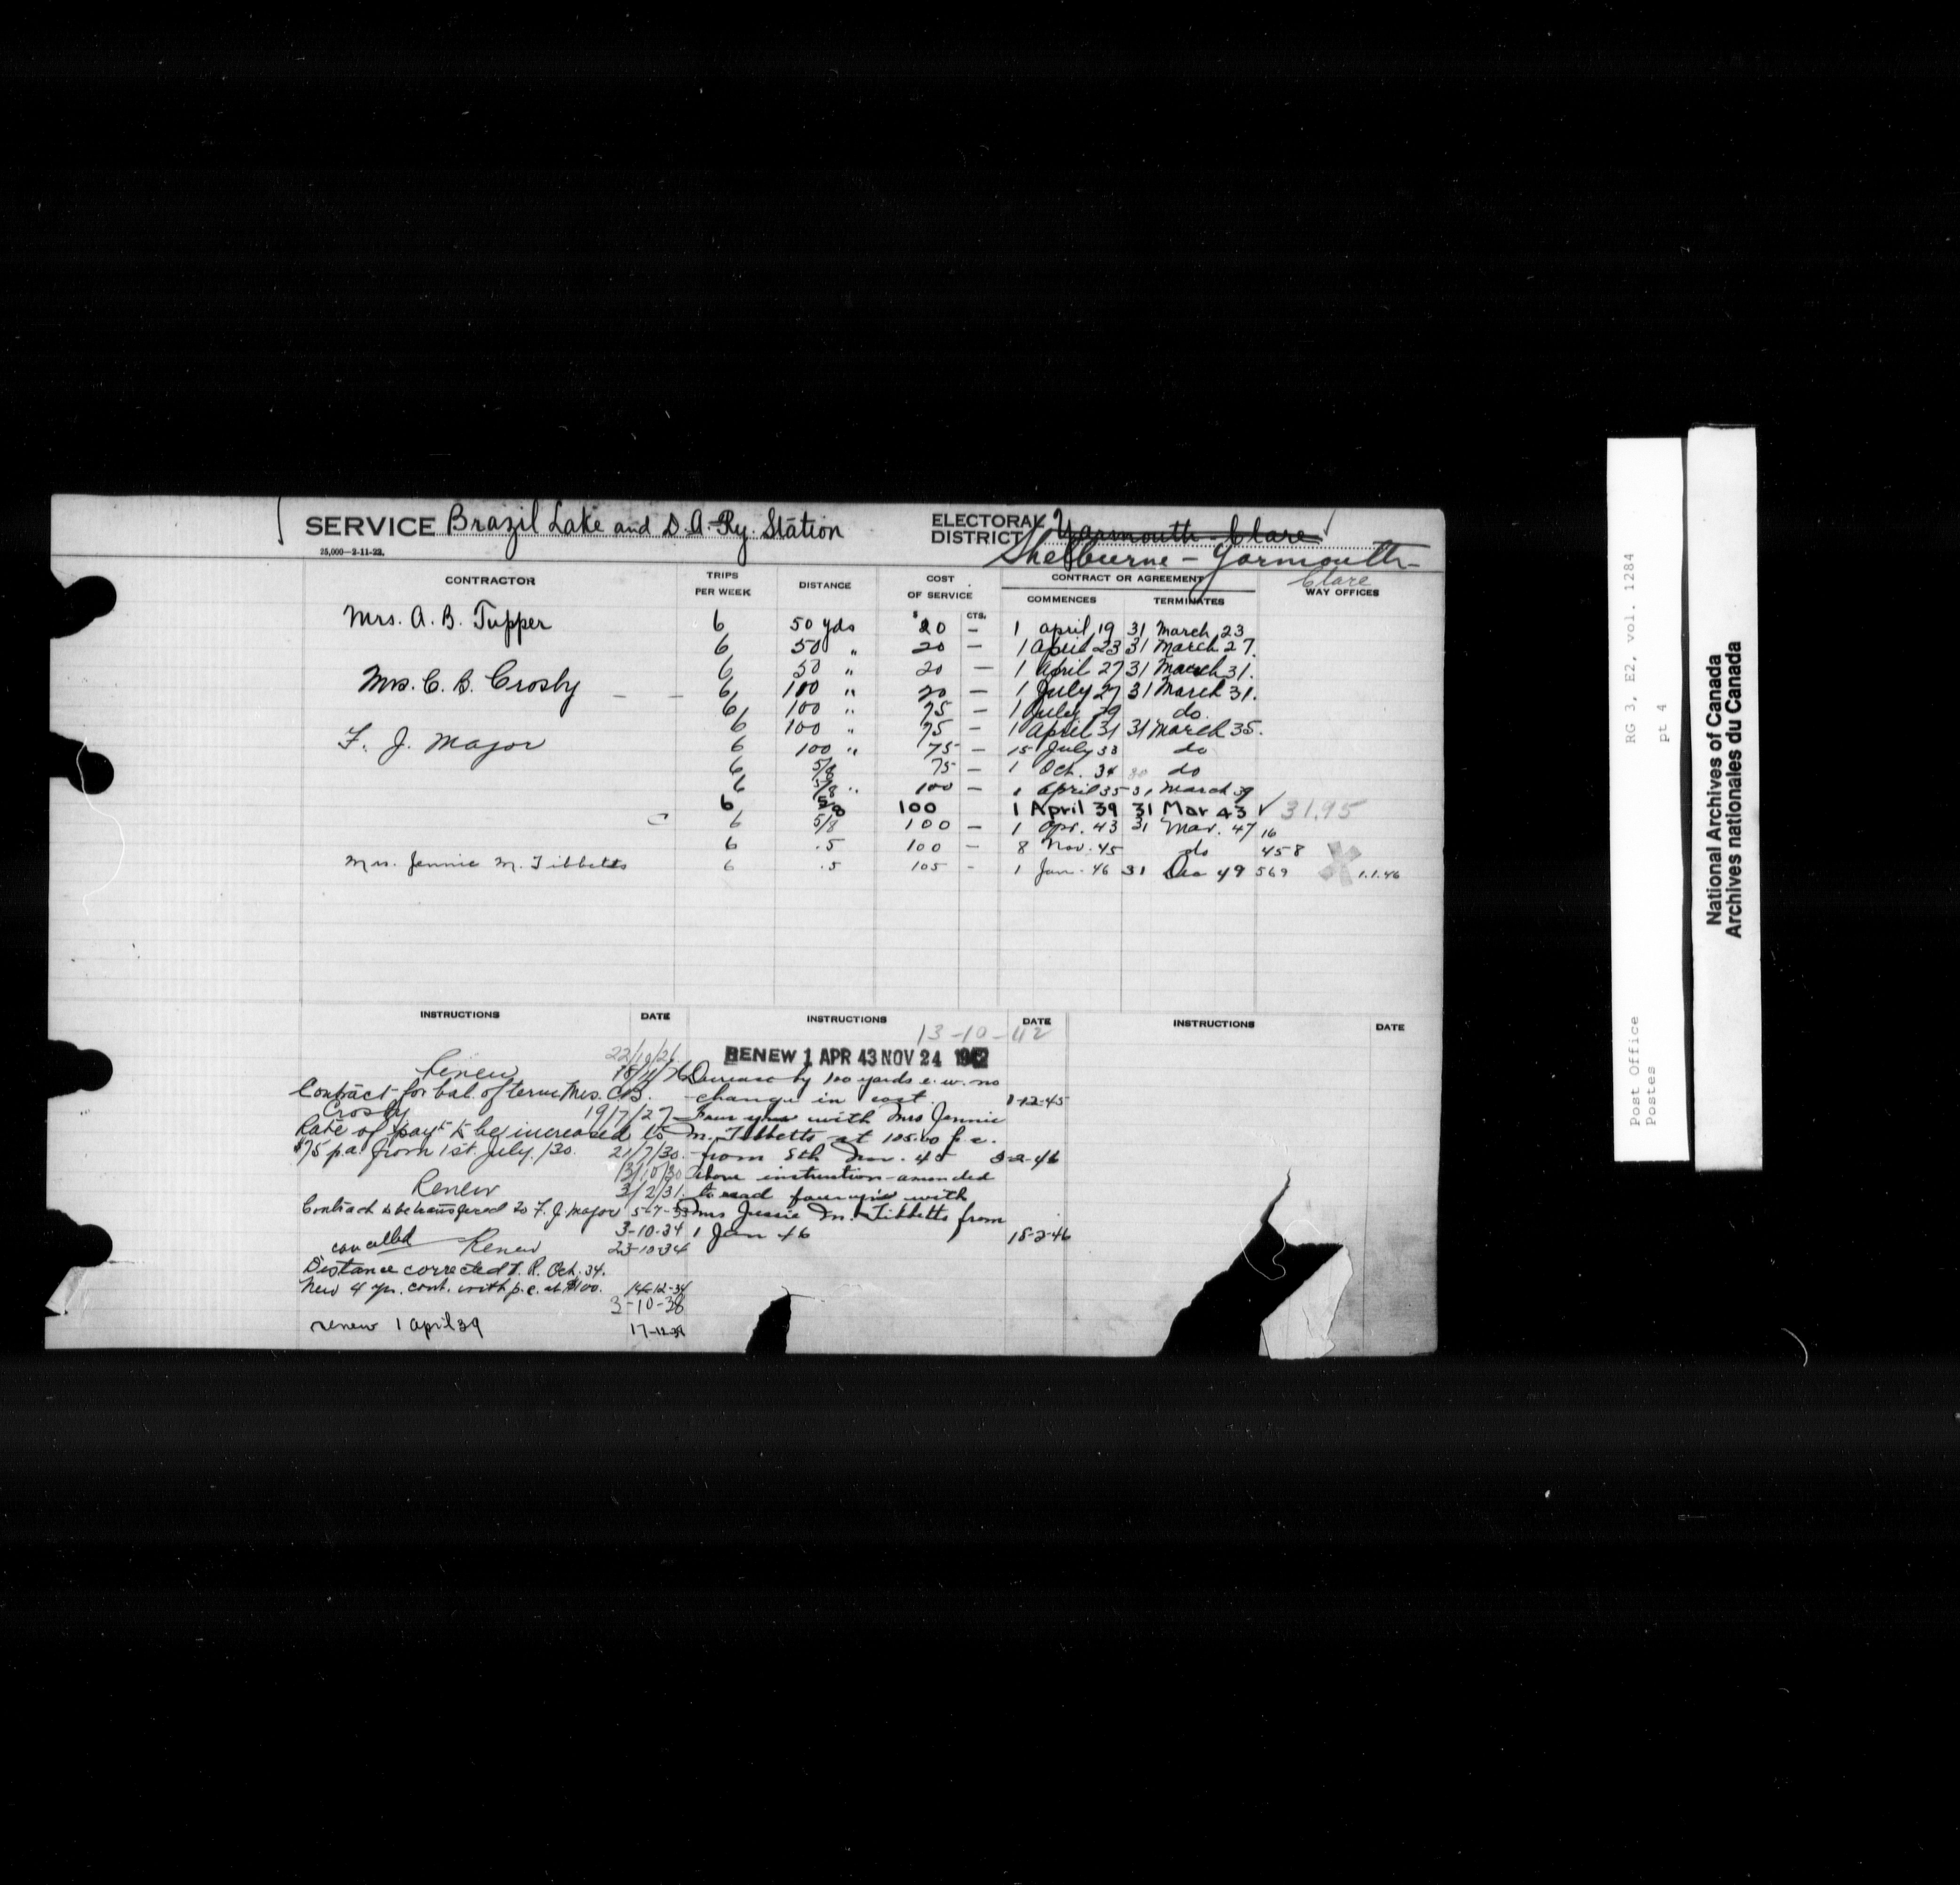 SERVICE Brazil Lake and D.A. Ry. Station
ELECTORAL DISTRICT Yarmouth-Clare
Shelburne - Yarmouth-
Clare
25,000—2-11-22.
CONTRACTOR TRIPS PER WEEK DISTANCE COST OF SERVICE CONTRACT OR AGREEMENT WAY OFFICES
$ CTS. COMMENCES TERMINATES
Mrs. A. B. Tupper 6 50 yds 20 — 1 April 19 31 March 23
6 50 " 20 — 1 April 23 31 March 27.
6 50 " 20 — 1 April 27 31 March 31.
Mrs. C. B. Crosby — — 6 100 " 20 — 1 July 27 31 March 31.
6 100 " 75 — 1 July 29 do.
6 100 " 75 — 1 April 31 31 March 35.
F. J. Major 6 100 " 75 — 15 July 33 do
6 5/8 75 — 1 Oct. 34 do
6 5/8 " 100 — 1 April 35 31 March 39
6 5/8 100 1 April 39 31 Mar 43 ✓ 31.95
6 5/8 100 — 1 Apr. 43 31 Mar. 47 16
6 .5 100 — 8 Nov. 45 do 458
Mrs. Jennie M. Tibbetts 6 .5 105 - 1 Jan. 46 31 Dec 49 569 1.1.46
INSTRUCTIONS DATE
22/10/26
Renew
Contract for bal. of term Mrs. C.B.
Crosby 19/7/27
Rate of payt to be increased to
$75 p.a. from 1st. July./30. 21/7/30.
13/10/30
Renew 3/2/31.
Contract to be transferred to F. J. Major 5-7-33
3-10-34
cancelled Renew 23-10-34
Distance corrected Oct. 34.
New 4 yr. cont. with p.c. at $100. 14-12-34
3-10-38
renew 1 April 39 17-12-38
INSTRUCTIONS DATE
13-10-42
RENEW 1 APR 43 NOV 24 1942
Decrease by 100 yards e.w. no
change in cost. 1-12-45
Four yrs with Mrs Jennie
M. Tibbetts at 105.00 p.a.
from 8th Nov. 45 3-2-46
Above instruction amended
to read four yrs with
Mrs Jessie M. Tibbetts from
1 Jan 46 18-2-46
INSTRUCTIONS DATE
RG 3, E2, vol. 1284
pt 4
Post Office
Postes
National Archives of Canada
Archives nationales du Canada